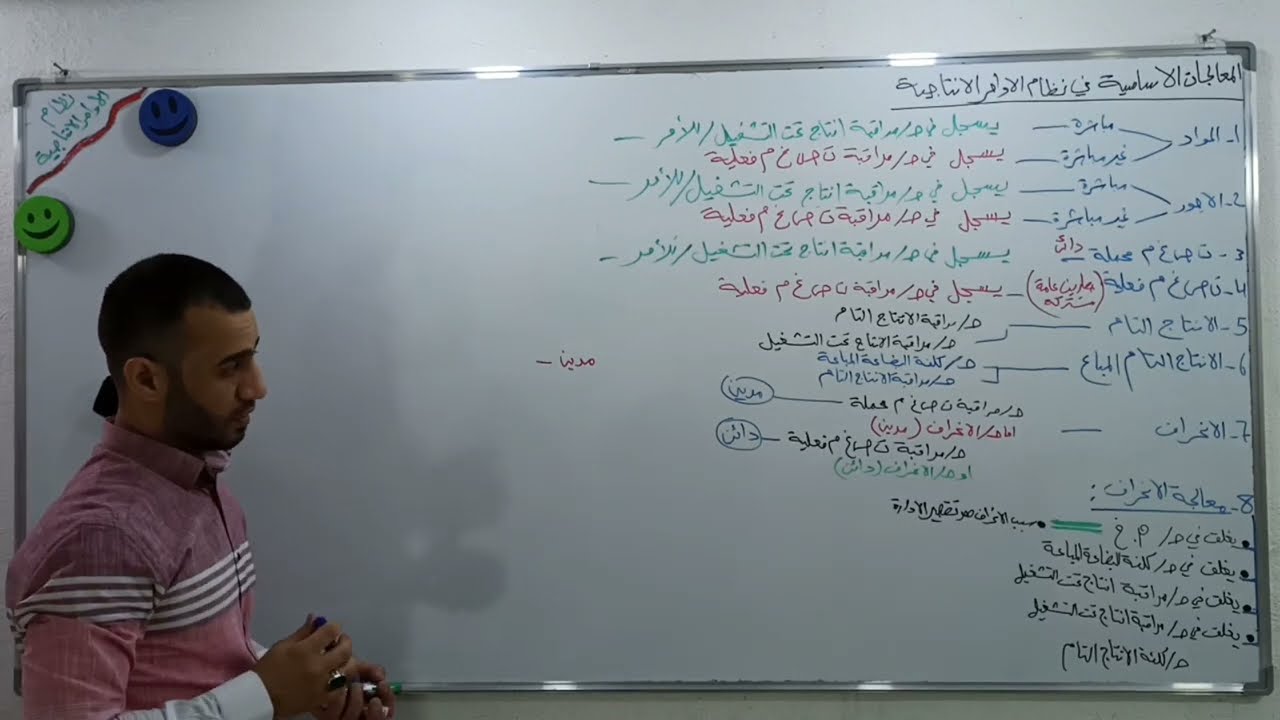 المعالجات الاساسية في نظام الاوامر الانتاجية
نظام
الاوامر الانتاجية
1- المواد
مباشرة - يسجل في ح/ مراقبة انتاج تحت التشغيل / للأمر -
غير مباشرة - يسجل في ح/ مراقبة ت ص غ م فعلية
2- الاجور
مباشرة - يسجل في ح/ مراقبة انتاج تحت التشغيل / للأمر -
غير مباشرة - يسجل في ح/ مراقبة ت ص غ م فعلية
3- ت ص غ م محملة دائن يسجل في ح/ مراقبة انتاج تحت التشغيل / للأمر -
4- ت ص غ م فعلية (مصاريف عامة مشتركة) - يسجل في ح/ مراقبة ت ص غ م فعلية
5- الانتاج التام
ح/ مراقبة الانتاج التام
ح/ مراقبة الانتاج تحت التشغيل
6- الانتاج التام المباع
ح/ كلفة البضاعة المباعة
ح/ مراقبة الانتاج التام
مدين -
7- الانحراف -
ح/ مراقبة ت ص غ م محملة - مدين
اما ح/ الانحراف (مدين)
ح/ مراقبة ت ص غ م فعلية - دائن
او ح/ الانحراف (دائن)
8- معالجة الانحراف :
• يغلق في ح/ م. خ = • سبب الانحراف هو تقصير الادارة
• يغلق في ح/ كلفة البضاعة المباعة
• يغلق في ح/ مراقبة انتاج تحت التشغيل
• يغلق في ح/ مراقبة انتاج تحت التشغيل
ح/ كلفة الانتاج التام